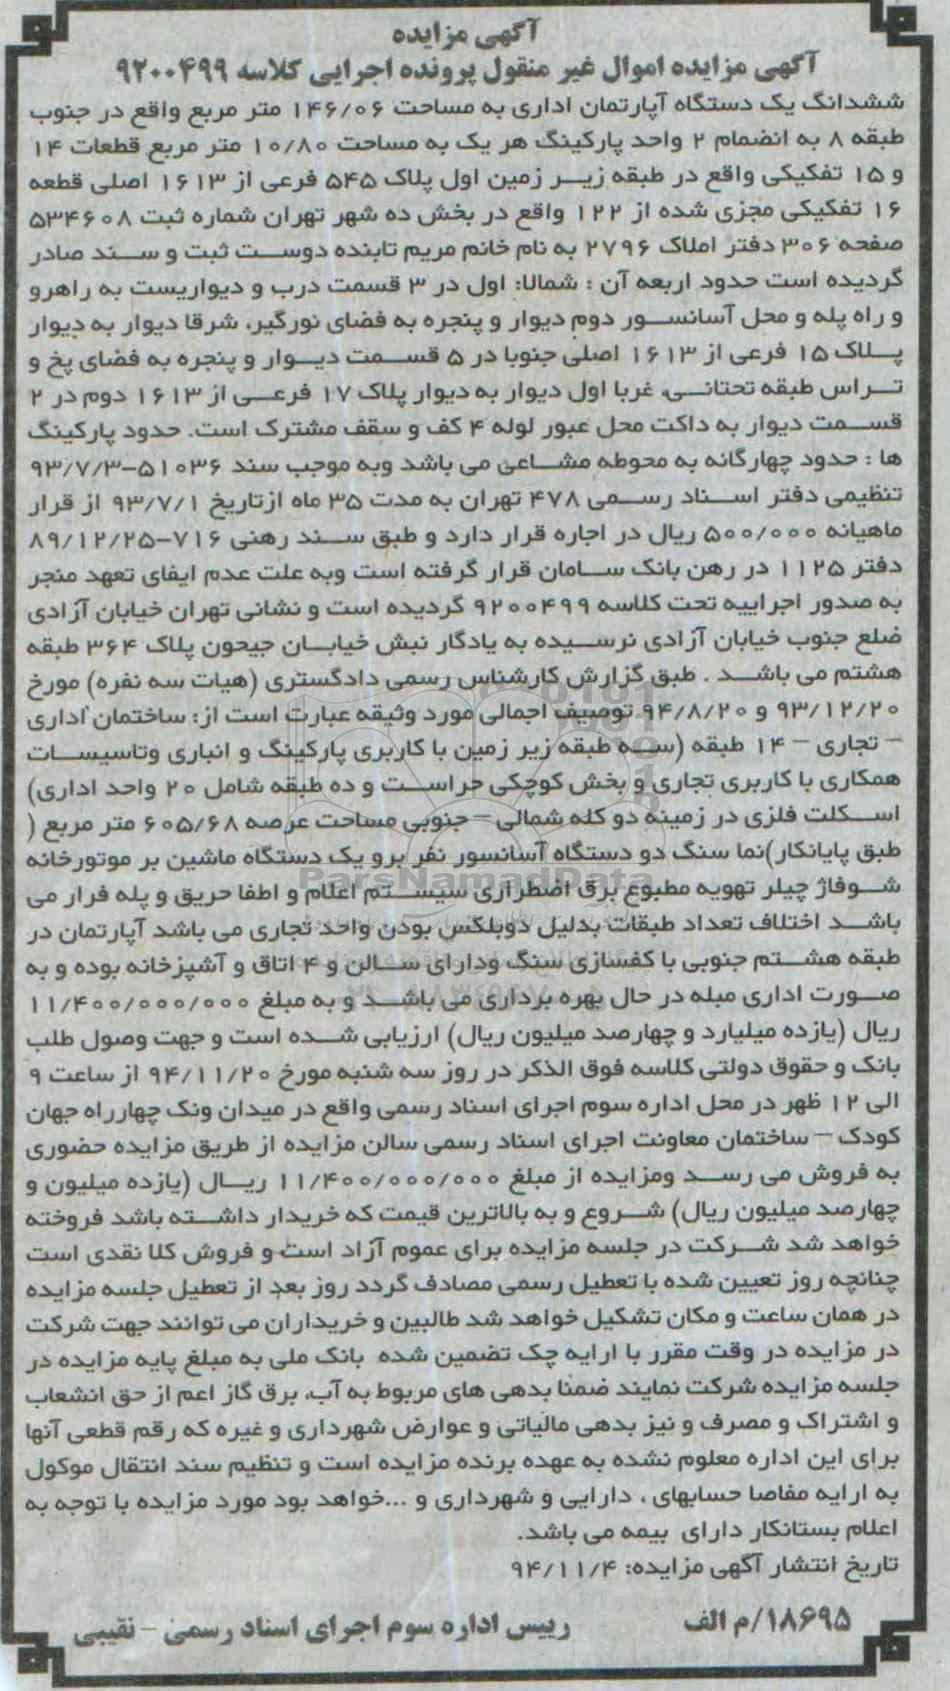 آگهی مزایده
آگهی مزایده اموال غیر منقول پرونده اجرایی کلاسه ۹۲۰۰۴۹۹
ششدانگ یک دستگاه آپارتمان اداری به مساحت ۱۴۶/۰۶ متر مربع واقع در جنوب
طبقه ۸ به انضمام ۲ واحد پارکینگ هر یک به مساحت ۱۰/۸۰ متر مربع قطعات ۱۴
و ۱۵ تفکیکی واقع در طبقه زیر زمین اول پلاک ۵۴۵ فرعی از ۱۶۱۳ اصلی قطعه
۱۶ تفکیکی مجزی شده از ۱۲۲ واقع در بخش ده شهر تهران شماره ثبت ۵۳۴۶۰۸
صفحه ۳۰۶ دفتر املاک ۲۷۹۶ به نام خانم مریم تابنده دوست ثبت و سند صادر
گردیده است حدود اربعه آن : شمالا: اول در ۳ قسمت درب و دیواریست به راهرو
و راه پله و محل آسانسور دوم دیوار و پنجره به فضای نورگیر، شرقا دیوار به دیوار
پلاک ۱۵ فرعی از ۱۶۱۳ اصلی جنوبا در ۵ قسمت دیوار و پنجره به فضای پخ و
تراس طبقه تحتانی، غربا اول دیوار به دیوار پلاک ۱۷ فرعی از ۱۶۱۳ دوم در ۲
قسمت دیوار به داکت محل عبور لوله ۴ کف و سقف مشترک است. حدود پارکینگ
ها : حدود چهارگانه به محوطه مشاعی می باشد وبه موجب سند ۵۱۰۳۶-۹۳/۷/۳
تنظیمی دفتر اسناد رسمی ۴۷۸ تهران به مدت ۳۵ ماه ازتاریخ ۹۳/۷/۱ از قرار
ماهیانه ۵۰۰/۰۰۰ ریال در اجاره قرار دارد و طبق سند رهنی ۷۱۶-۸۹/۱۲/۲۵
دفتر ۱۱۲۵ در رهن بانک سامان قرار گرفته است وبه علت عدم ایفای تعهد منجر
به صدور اجراییه تحت کلاسه ۹۲۰۰۴۹۹ گردیده است و نشانی تهران خیابان آزادی
ضلع جنوب خیابان آزادی نرسیده به یادگار نبش خیابان جیحون پلاک ۳۶۴ طبقه
هشتم می باشد . طبق گزارش کارشناس رسمی دادگستری (هیات سه نفره) مورخ
۹۳/۱۲/۲۰ و ۹۴/۸/۲۰ توصیف اجمالی مورد وثیقه عبارت است از: ساختمان اداری
– تجاری – ۱۴ طبقه (سه طبقه زیر زمین با کاربری پارکینگ و انباری وتاسیسات
همکاری با کاربری تجاری و بخش کوچکی حراست و ده طبقه شامل ۲۰ واحد اداری)
اسکلت فلزی در زمینه دو کله شمالی – جنوبی مساحت عرصه ۶۰۵/۶۸ متر مربع (
طبق پایانکار)نما سنگ دو دستگاه آسانسور نفر برو یک دستگاه ماشین بر موتورخانه
شوفاژ چیلر تهویه مطبوع برق اضطراری سیستم اعلام و اطفا حریق و پله فرار می
باشد اختلاف تعداد طبقات بدلیل دوبلکس بودن واحد تجاری می باشد آپارتمان در
طبقه هشتم جنوبی با کفسازی سنگ ودارای سالن و ۴ اتاق و آشپزخانه بوده و به
صورت اداری مبله در حال بهره برداری می باشد و به مبلغ ۱۱/۴۰۰/۰۰۰/۰۰۰
ریال (یازده میلیارد و چهارصد میلیون ریال) ارزیابی شده است و جهت وصول طلب
بانک و حقوق دولتی کلاسه فوق الذکر در روز سه شنبه مورخ ۹۴/۱۱/۲۰ از ساعت ۹
الی ۱۲ ظهر در محل اداره سوم اجرای اسناد رسمی واقع در میدان ونک چهارراه جهان
کودک – ساختمان معاونت اجرای اسناد رسمی سالن مزایده از طریق مزایده حضوری
به فروش می رسد ومزایده از مبلغ ۱۱/۴۰۰/۰۰۰/۰۰۰ ریال (یازده میلیون و
چهارصد میلیون ریال) شروع و به بالاترین قیمت که خریدار داشته باشد فروخته
خواهد شد شرکت در جلسه مزایده برای عموم آزاد است و فروش کلا نقدی است
چنانچه روز تعیین شده با تعطیل رسمی مصادف گردد روز بعد از تعطیل جلسه مزایده
در همان ساعت و مکان تشکیل خواهد شد طالبین و خریداران می توانند جهت شرکت
در مزایده در وقت مقرر با ارایه چک تضمین شده بانک ملی به مبلغ پایه مزایده در
جلسه مزایده شرکت نمایند ضمنا بدهی های مربوط به آب، برق گاز اعم از حق انشعاب
و اشتراک و مصرف و نیز بدهی مالیاتی و عوارض شهرداری و غیره که رقم قطعی آنها
برای این اداره معلوم نشده به عهده برنده مزایده است و تنظیم سند انتقال موکول
به ارایه مفاصا حسابهای ، دارایی و شهرداری و ...خواهد بود مورد مزایده با توجه به
اعلام بستانکار دارای بیمه می باشد.
تاریخ انتشار آگهی مزایده: ۹۴/۱۱/۴
۱۸۶۹۵/م الف
رییس اداره سوم اجرای اسناد رسمی – نقیبی
ParsNamadData